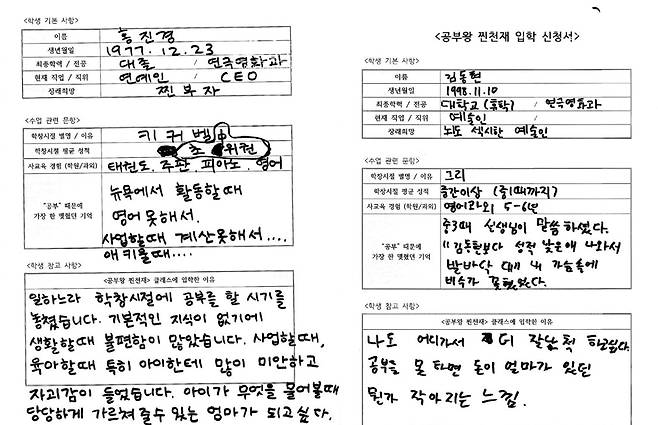 <학생 기본 사항>
이름 홍진경
생년월일 1977. 12. 23
최종학력 / 전공 대졸 / 연극영화과
현재 직업 / 직위 연예인 / CEO
장래희망 찐부자
<수업 관련 문항>
학창시절 별명 / 이유 키커
학창시절 평균 성적 위권
사교육 경험 (학원/과외) 태권도, 주판, 피아노, 영어
"공부" 때문에
가장 한 맺혔던 기억
뉴욕에서 활동할때
영어못해서.
사업할때 계산못해서....
애 키울때....
<학생 참고 사항>
<공부왕 찐천재> 클래스에 입학한 이유
일하느라 학창시절에 공부를 할 시기를
놓쳤습니다. 기본적인 지식이 없기에
생활할때 불편함이 많았습니다. 사업할때,
육아할때 특히 아이한테 많이 미안하고
자괴감이 들었습니다. 아이가 무엇을 물어볼때
당당하게 가르쳐 줄수 있는 엄마가 되고 싶다.
<공부왕 찐천재 입학 신청서>
<학생 기본 사항>
이름 김동현
생년월일 1998.11.10
최종학력 / 전공 대학교 / 연극영화과
현재 직업 / 직위 예술인
장래희망 뇌도 섹시한 예술인
<수업 관련 문항>
학창시절 별명 / 이유 그리
학창시절 평균 성적 중간이상 (중1때까지)
사교육 경험 (학원/과외) 영어과외 5-6년
"공부" 때문에
가장 한 맺혔던 기억
중3때 선생님이 말씀하셨다.
"김동현보다 성적 낮은애 나와서
발바닥 대" 내 가슴속에
비수가 꽂혔다.
<학생 참고 사항>
<공부왕 찐천재> 클래스에 입학한 이유
나도 어디가서 더 잘난 척 하고싶다.
공부를 못 하면 돈이 얼마가 있던
뭔가 작아지는 느낌.